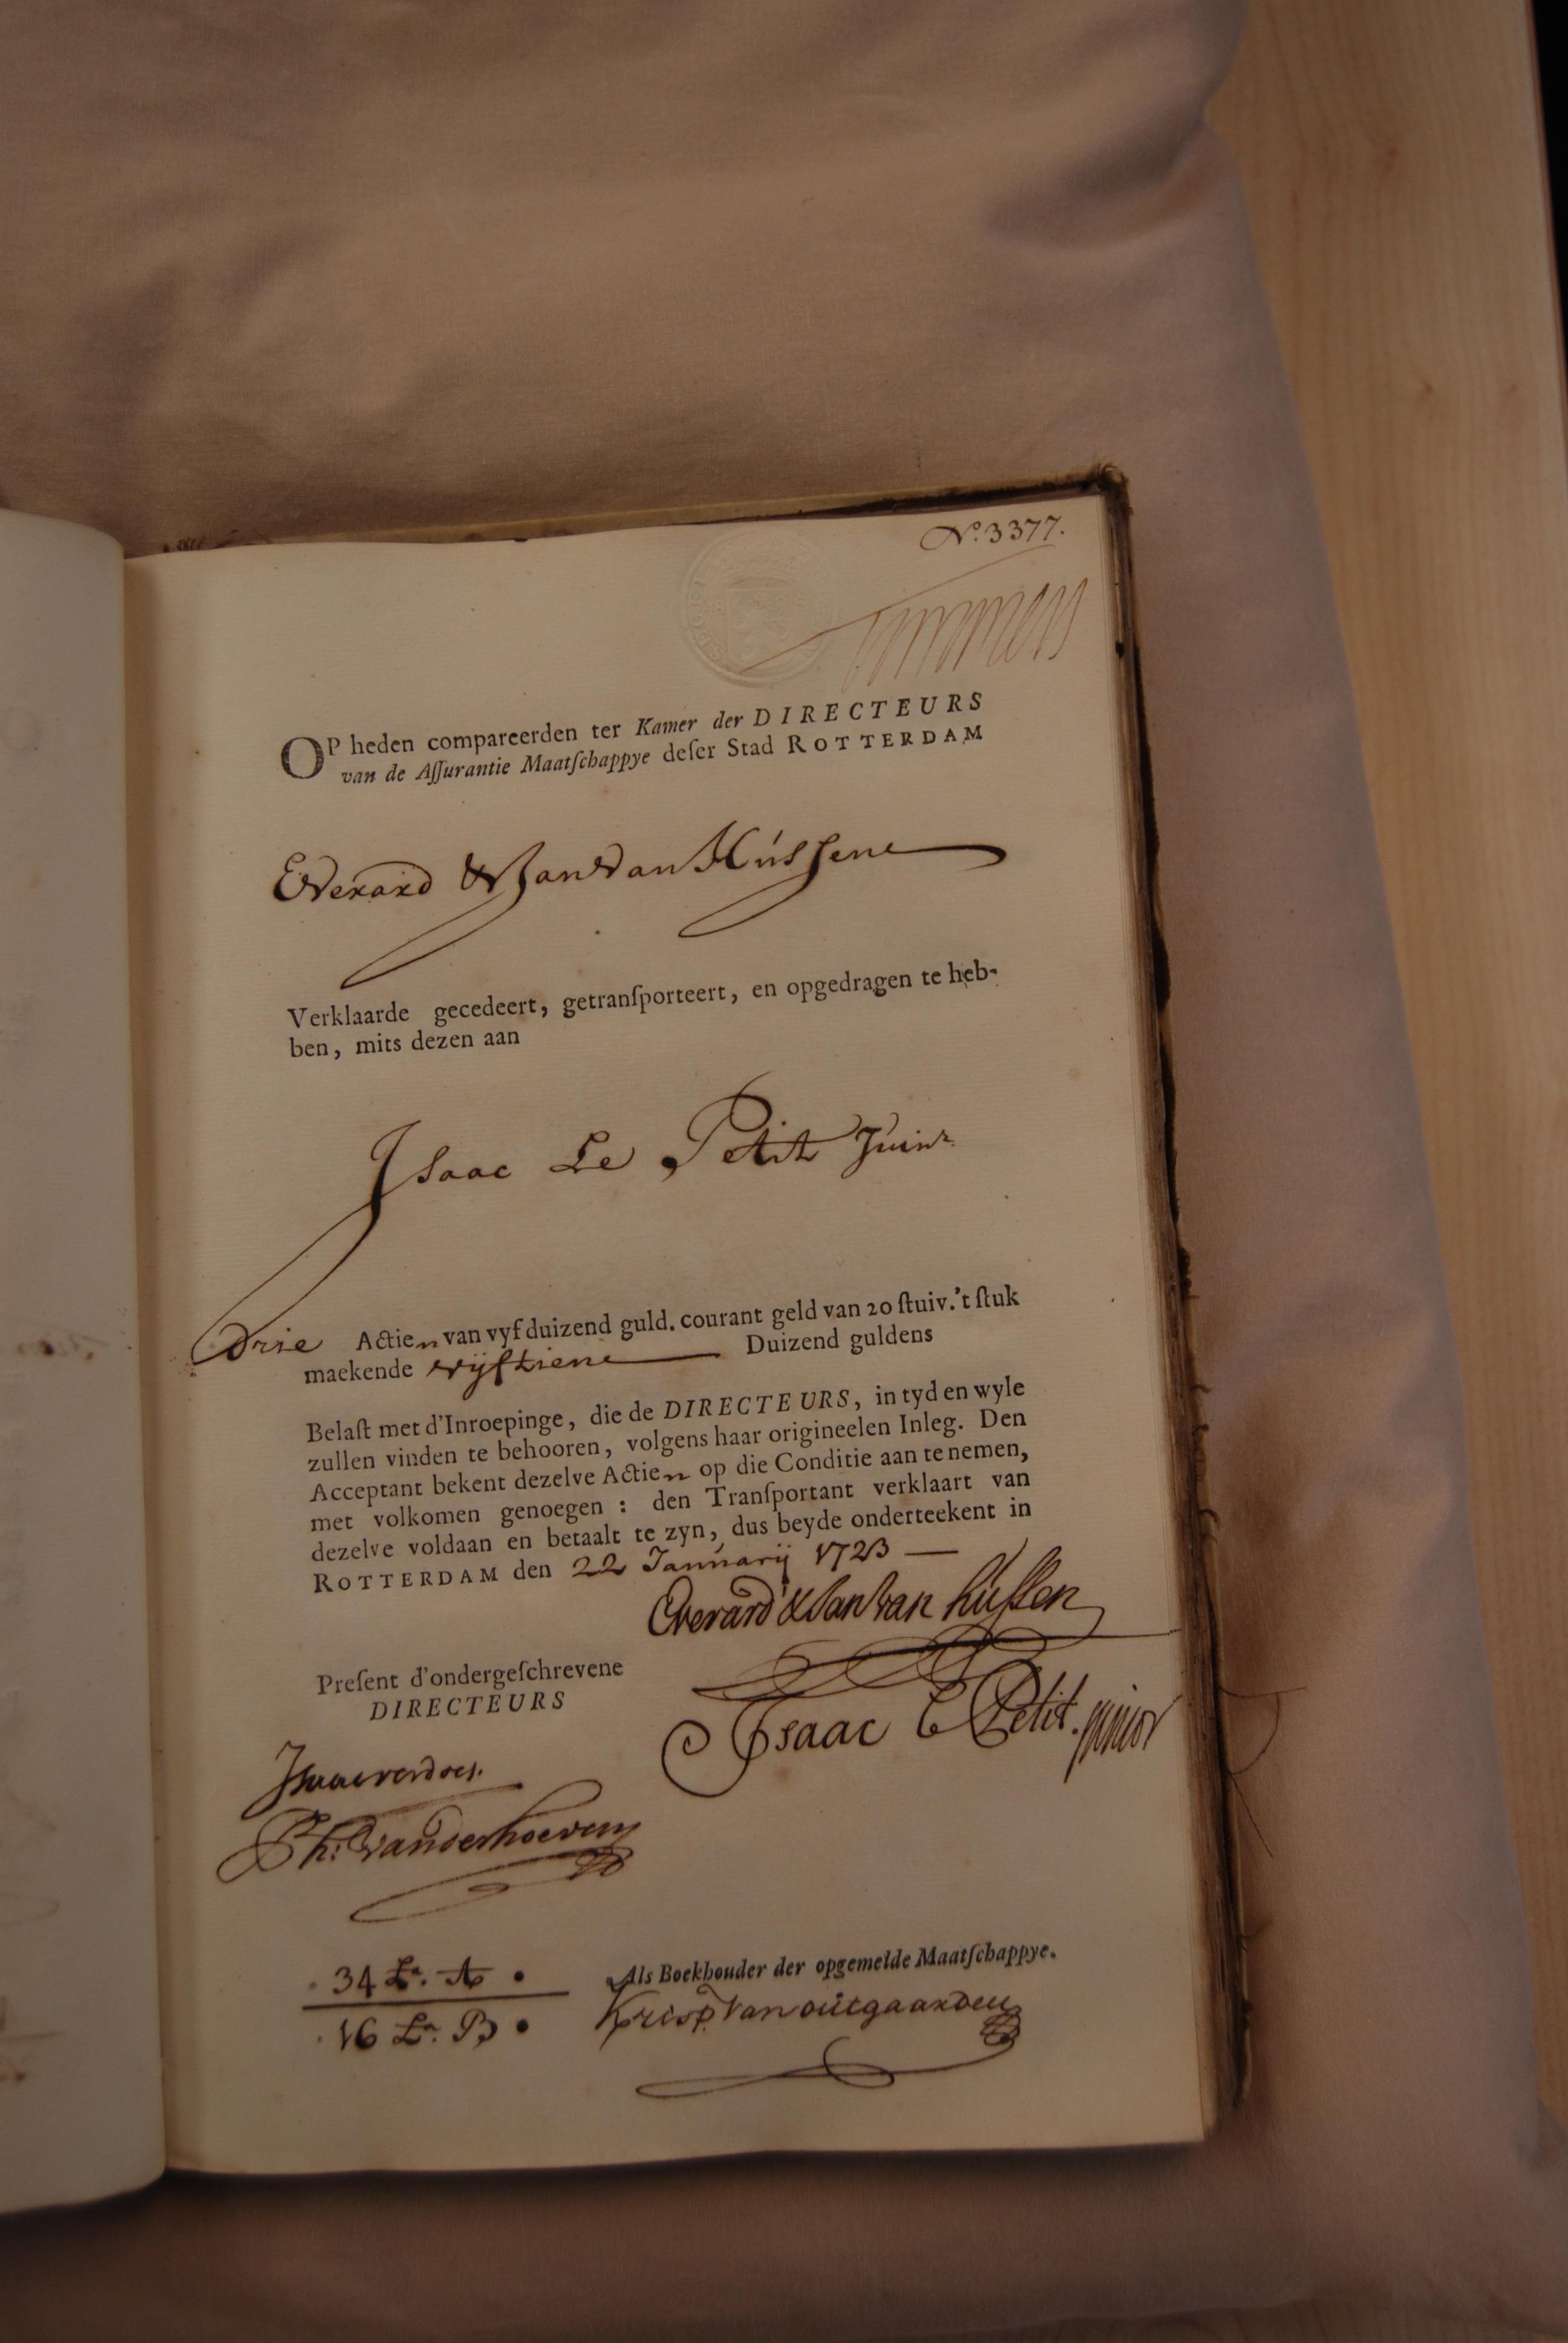 No. 3377.
OP heden compareerden ter Kamer der DIRECTEURS
van de Aſſurantie Maatſchappye deſer Stad ROTTERDAM
Everard & Jan Van Hússene
Verklaarde gecedeert, getranſporteert, en opgedragen te heb-
ben, mits dezen aan
Isaac Le Petit Juinr.
Drie Actien van vyf duizend guld. courant geld van 20 ſtuiv. 't ſtuk
maekende vyftiene Duizend guldens
Belaſt met d'Inroepinge, die de DIRECTEURS, in tyd en wyle
zullen vinden te behooren, volgens haar origineelen Inleg. Den
Acceptant bekent dezelve Actien op die Conditie aan te nemen,
met volkomen genoegen : den Tranſportant verklaart van
dezelve voldaan en betaalt te zyn, dus beyde onderteekent in
ROTTERDAM den 22 Janúarij 1723 —
Everard & Jan van húſſen
Preſent d'ondergeſchrevene
DIRECTEURS
Isaac Le Petit. junior
Isaac verdoes.
Ph: vanderhoeven
34 La. A.
Als Boekhouder der opgemelde Maatſchappye.
16 La. B.
Krisp. Van oútgaarden